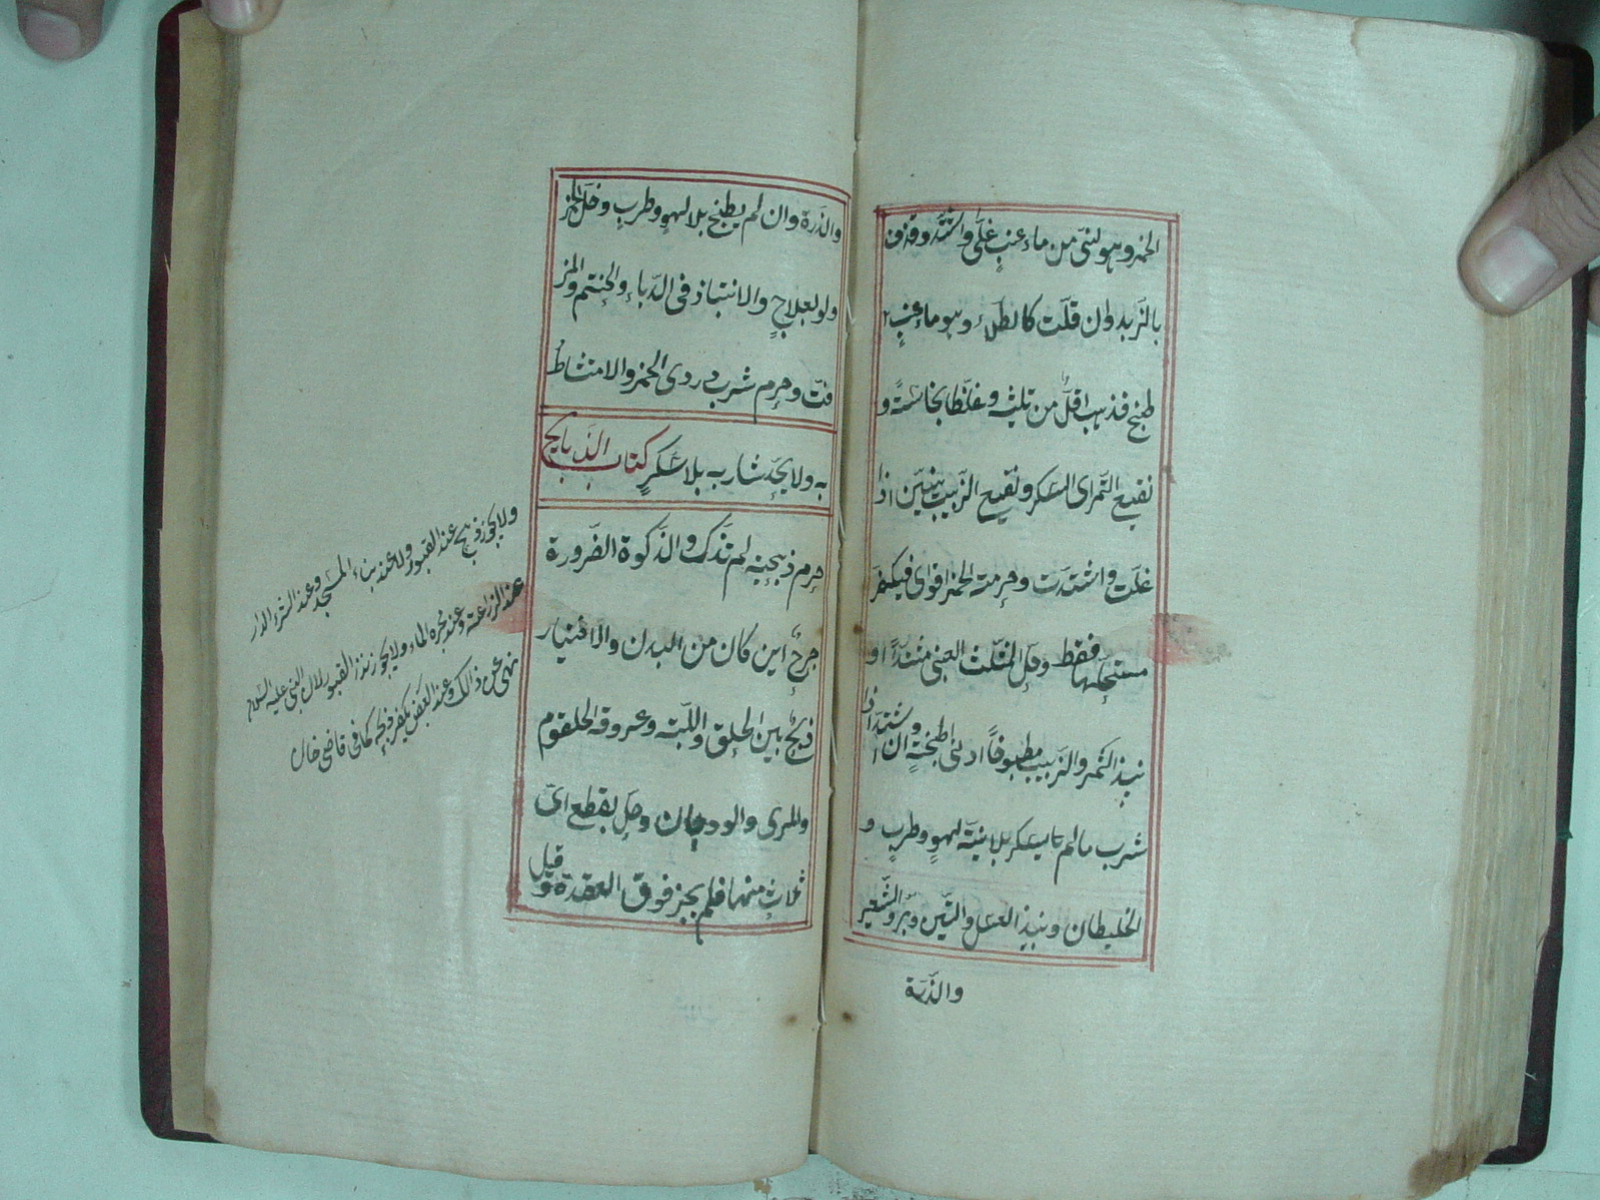 الخمر وهو لنى من ماء عنب غلى واشتد وقذف
بالزبد وان قلت كالطلاء وهو ماء عنب
طبخ فذهب اقل من ثلثيه وغلظا نجاسة و
نقيع التمر اى السكر ونقيع الزبيب نيين اذا
غلت واشتدت وحرمة الخمر اقوى فيكفر
مستحلها فقط وحل المثلث العنبى مشتدا او
نبيذ التمر والزبيب مطبوخا ادنى طبخة وان اشتد اذا
شرب ما لم يسكر بلا نية لهو وطرب و
الخليطان ونبيذ العسل والتين وبر والشعير
والذرة
والذرة وان لم يطبخ بلا لهو وطرب وخل الخمر
ولو بعلاج والانتباذ فى الدباء والحنتم والمز
فت وحرم شرب دردى الخمر والامتشاط
به ولا يحد شاربه بلا سكر كتاب الذبايح
حرم ذبيحة لم تذك والذكوة الضرورة
جرح اين كان من البدن والاختيار
ذبح بين الحلق واللبة وعروقه الحلقوم
والمرى والودجان وحل بقطع اى
ثلاث منها فلم يجز فوق العقدة وقيل
ولا يجوز ذبح عند القبور ولا عند بناء المسجد وعند الشراء الدار
عند الزراعة وعند بحره الماء ولا يجوز نذر القبور لان النبى عليه السلام
نهى عن ذالك وعند البعض يكفر فبحكم كما فى قاضى خان